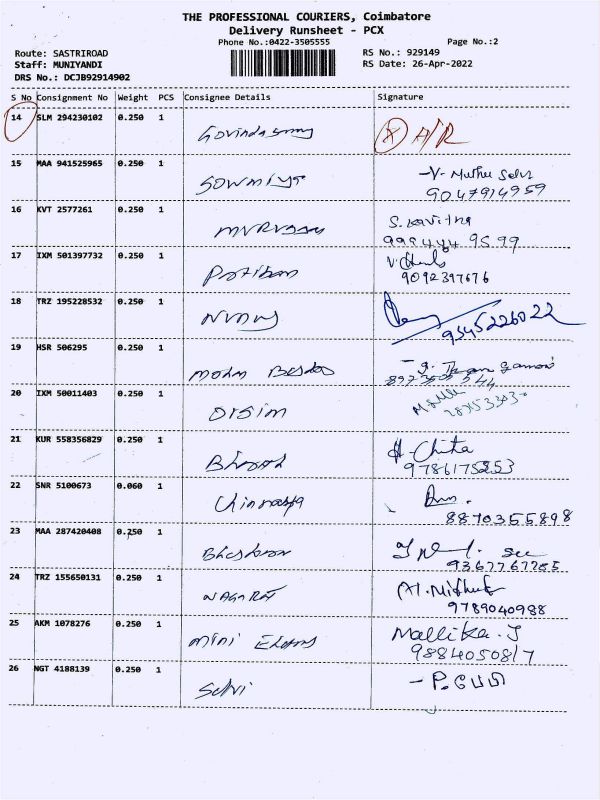 THE PROFESSIONAL COURIERS, Coimbatore
Delivery Runsheet - PCX
Phone No.:0422-3505555
Page No.:2
Route: SASTRIROAD
RS No.: 929149
Staff: MUNIYANDI
RS Date: 26-Apr-2022
DRS No.: DCJB92914902
S No Consignment No Weight PCS Consignee Details Signature
14 SLM 294230102 0.250 1 Govindasamy A/R
15 MAA 941525965 0.250 1 Sowmiya -V. Muthu Selvi
9047914959
16 KVT 2577261 0.250 1 S. Kavitha
999444 9599
17 IXM 501397732 0.250 1
9092397676
18 TRZ 195228532 0.250 1
9345226022
19 HSR 506295 0.250 1
20 IXM 50011403 0.250 1
21 KUR 558356829 0.250 1 Chitra
9786175253
22 SNR 5100673 0.060 1
8870355898
23 MAA 287420408 0.250 1
9367767255
24 TRZ 155650131 0.250 1 NAGARAJ
9789040988
25 AKM 1078276 0.250 1 Mallika. J
9884050817
26 NGT 4188139 0.250 1 Selvi - P. பேபி